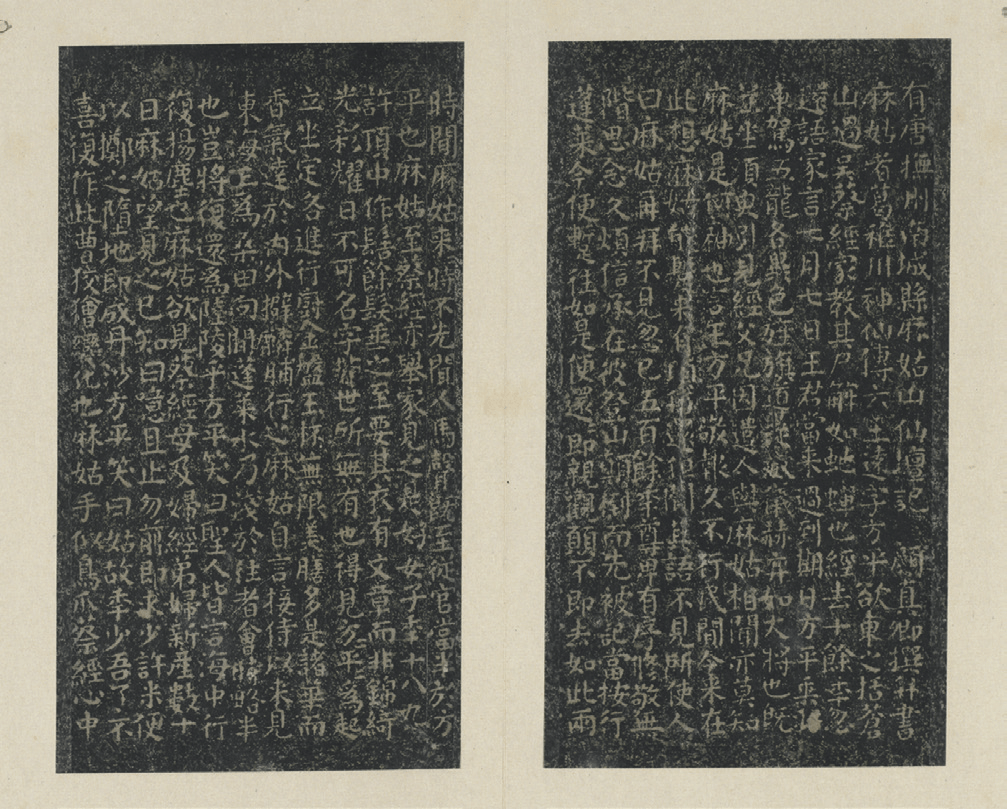 有唐撫州南城縣麻姑山仙壇記 顏真卿撰并書
麻姑者葛稚川神仙傳云王遠字方平欲東之括蒼
山過吳蔡經家教其尸解如蛇蟬也經去十餘年忽
還語家言七月七日王君當來過到期日方平乘羽
車駕五龍各異色旌旗導從威儀赫弈如大將也既
至坐須臾引見經父兄因遣人與麻姑相聞亦莫知
麻姑是何神也言王方平敬報久不行民間今來在
此想麻姑能暫來有頃信還但聞其語不見所使人
曰麻姑再拜不見忽已五百餘年尊卑有序修敬無
階思念久煩信承在彼登山顛倒而先被記當按行
蓬萊今便暫往如是便還即親覲願不即去如此兩
時間麻姑來時不先聞人馬聲既至從官當半於方
平也麻姑至蔡經亦舉家見之是好女子年十八九
許頂中作髻餘髮垂之至要其衣有文章而非錦綺
光彩耀日不可名字皆世所無有也得見方平為起
立坐定各進行廚金盤玉杯無限美膳多是諸華而
香氣達於內外擗麟脯行之麻姑自言接侍以來見
東海三為桑田向間蓬萊水乃淺於往者會時略半
也豈將復還為陸陵乎方平笑曰聖人皆言海中行
復揚塵也麻姑欲見蔡經母及婦經弟婦新產數十
日麻姑望見之已知曰噫且止勿前即求少許米便
以擲之墮地即成丹沙方平笑曰姑故年少吾了不
喜復作此曹狡獪變化也麻姑手似鳥爪蔡經心中